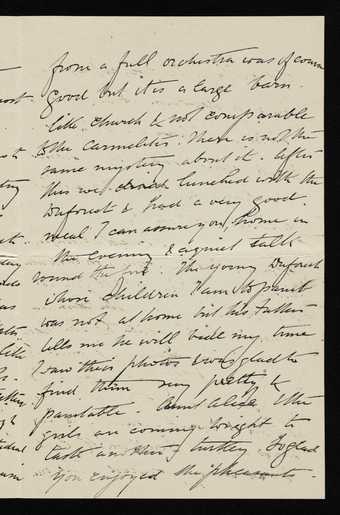 from a full orchestra was of course
good but it is a large barn
like church & not comparable
to the Carmelites. There is not the
same mystery about it. After
this we lunched with the
Duforest & had a very good
meal I can assure you, home in
the evening & a quiet talk
round the fire. The young Duforest
whose children I am to paint
was not at home but his father
tells me he will bide my time
I saw their photos & was glad to
find them very pretty &
paintable. Aunt Alice & the
girls are coming tonight to
taste another turkey. So glad
you enjoyed the pheasants.